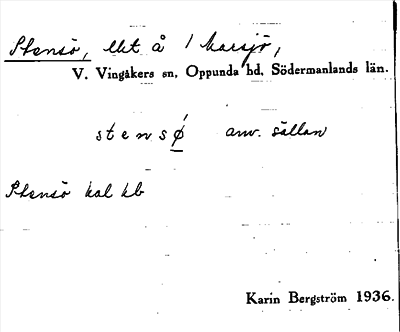 Stensö, litet å i harsjö,
V. Vingåkers sn, Oppunda hd, Södermanlands län.
stensǿ anv. sällan
Stensö kal kb
Karin Bergström 1936.